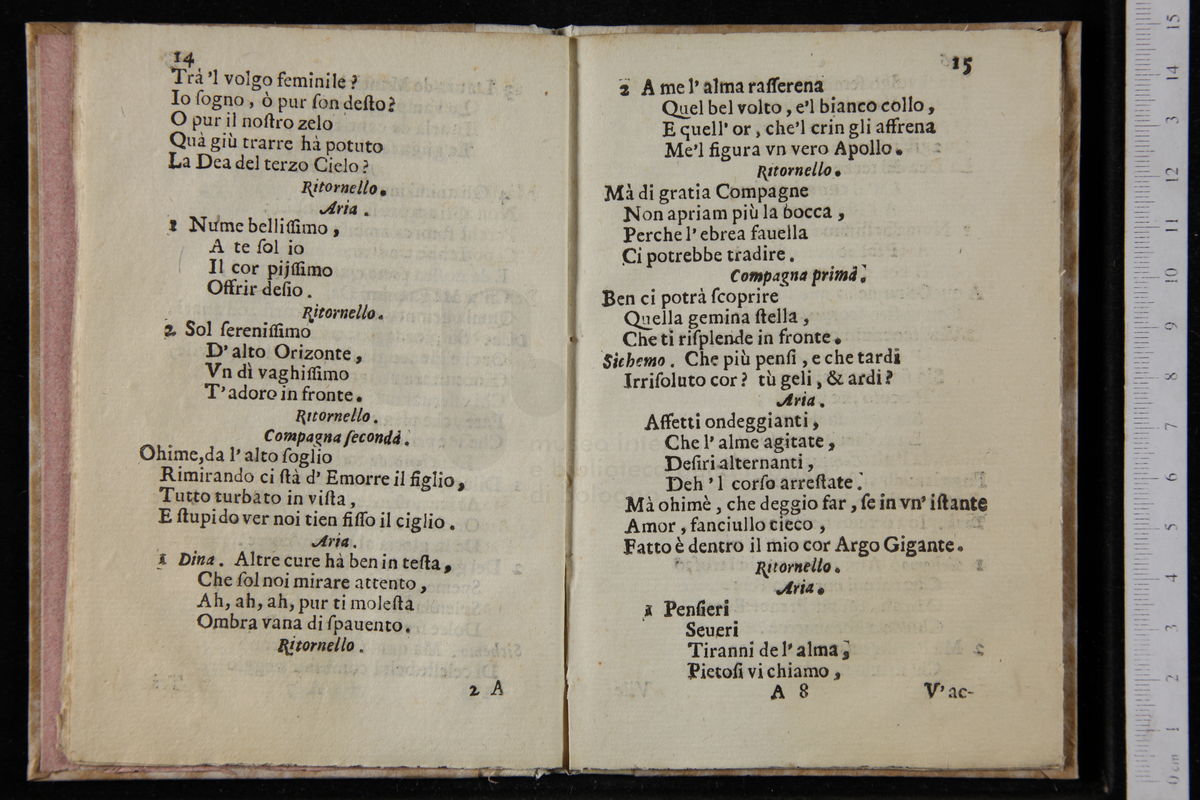 14
Trà 'l volgo feminile ?
Io ſogno , ò pur ſon deſto ?
O pur il noſtro zelo
Quà giù trarre hà potuto
La Dea del terzo Cielo ?
Ritornello.
Aria .
1 Nume belliſſimo ,
A te ſol io
Il cor pijſſimo
Offrir deſio .
Ritornello.
2 Sol ſereniſſimo
D' alto Orizonte ,
Vn dì vaghiſſimo
T' adoro in fronte .
Ritornello .
Compagna ſeconda .
Ohime, da l' alto ſoglio
Rimirando ci ſtà d' Emorre il figlio ,
Tutto turbato in viſta ,
E ſtupido ver noi tien fiſſo il ciglio .
Aria .
1 Dina . Altre cure hà ben in teſta ,
Che ſol noi mirare attento ,
Ah, ah, ah, pur ti moleſta
Ombra vana di ſpauento .
Ritornello .
2 A
15
2 A me l' alma raſſerena
Quel bel volto , e'l bianco collo ,
E quell' or , che'l crin gli affrena
Me'l figura vn vero Apollo .
Ritornello .
Mà di gratia Compagne
Non apriam più la bocca ,
Perche l' ebrea fauella
Ci potrebbe tradire .
Compagna prima .
Ben ci potrà ſcoprire
Quella gemina ſtella ,
Che ti riſplende in fronte .
Sichemo . Che più penſi , e che tardi
Irriſoluto cor ? tù geli , & ardi ?
Aria .
Affetti ondeggianti ,
Che l' alme agitate ,
Deſiri alternanti ,
Deh 'l corſo arreſtate .
Mà ohimè , che deggio far , ſe in vn' iſtante
Amor , fanciullo cieco ,
Fatto è dentro il mio cor Argo Gigante .
Ritornello .
Aria .
1 Penſieri
Seueri
Tiranni de l' alma ,
Pietoſi vi chiamo ,
A 8 V' ac-